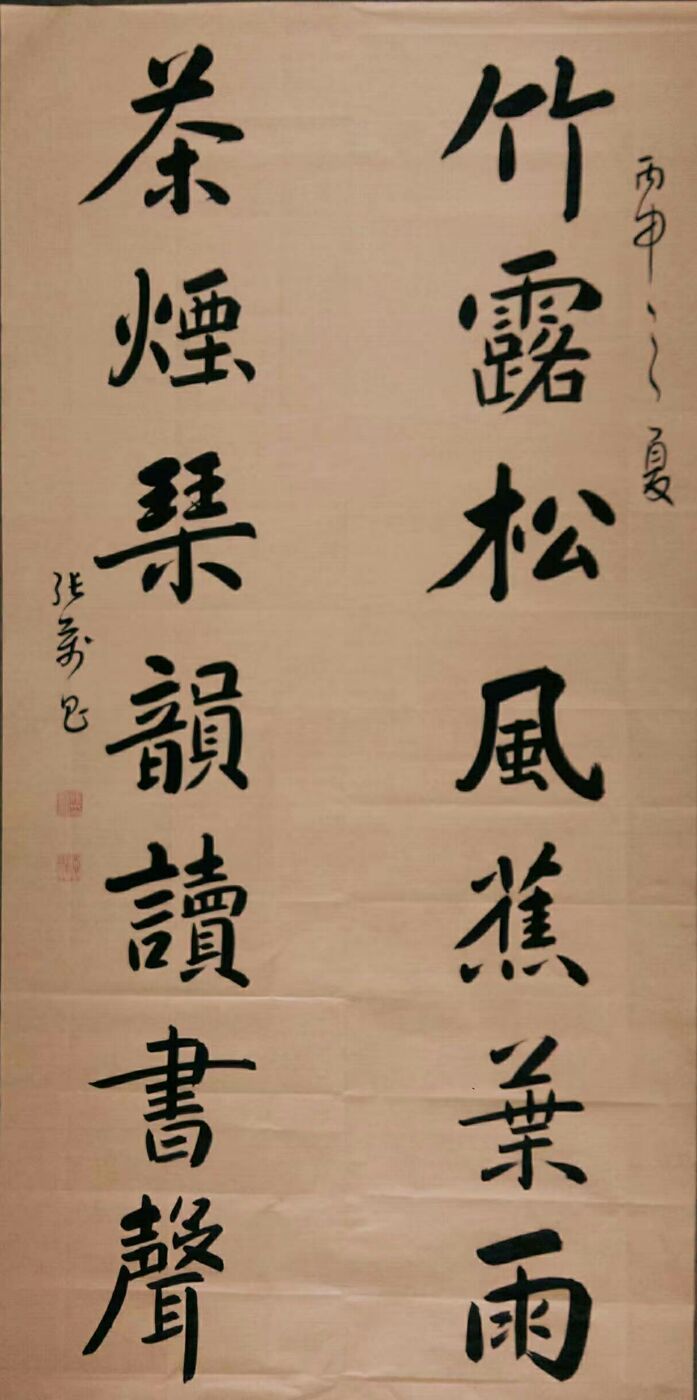 丙申之夏
竹露松風蕉葉雨
茶煙琴韻讀書聲
張萬